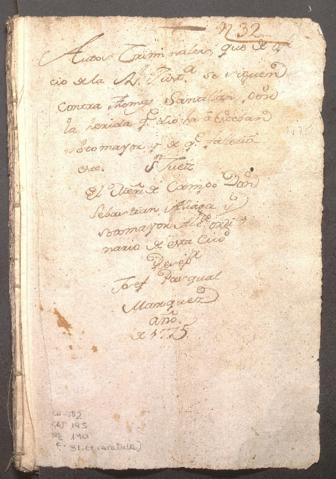 N 32
Autos Criminales que de ofi
cio de la Rl. Justa. se siguen
contra Thomas Santillan, con
la herida qe. dio ha a Esteban
sotomayor y de qe. falecio
etc. Sr. Juez
El Mtre. de Campo Dn.
Sebastian Aliaga y
sotomayor Alce. ordi
nario de esta Ciud.
Josef Pasqual
Manrquez
año.
de 1775
145
190
31. (+ caratula)